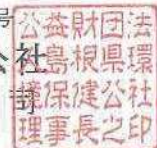 号
社
公益財団法
人島根県環
境保健公社
理事長之印